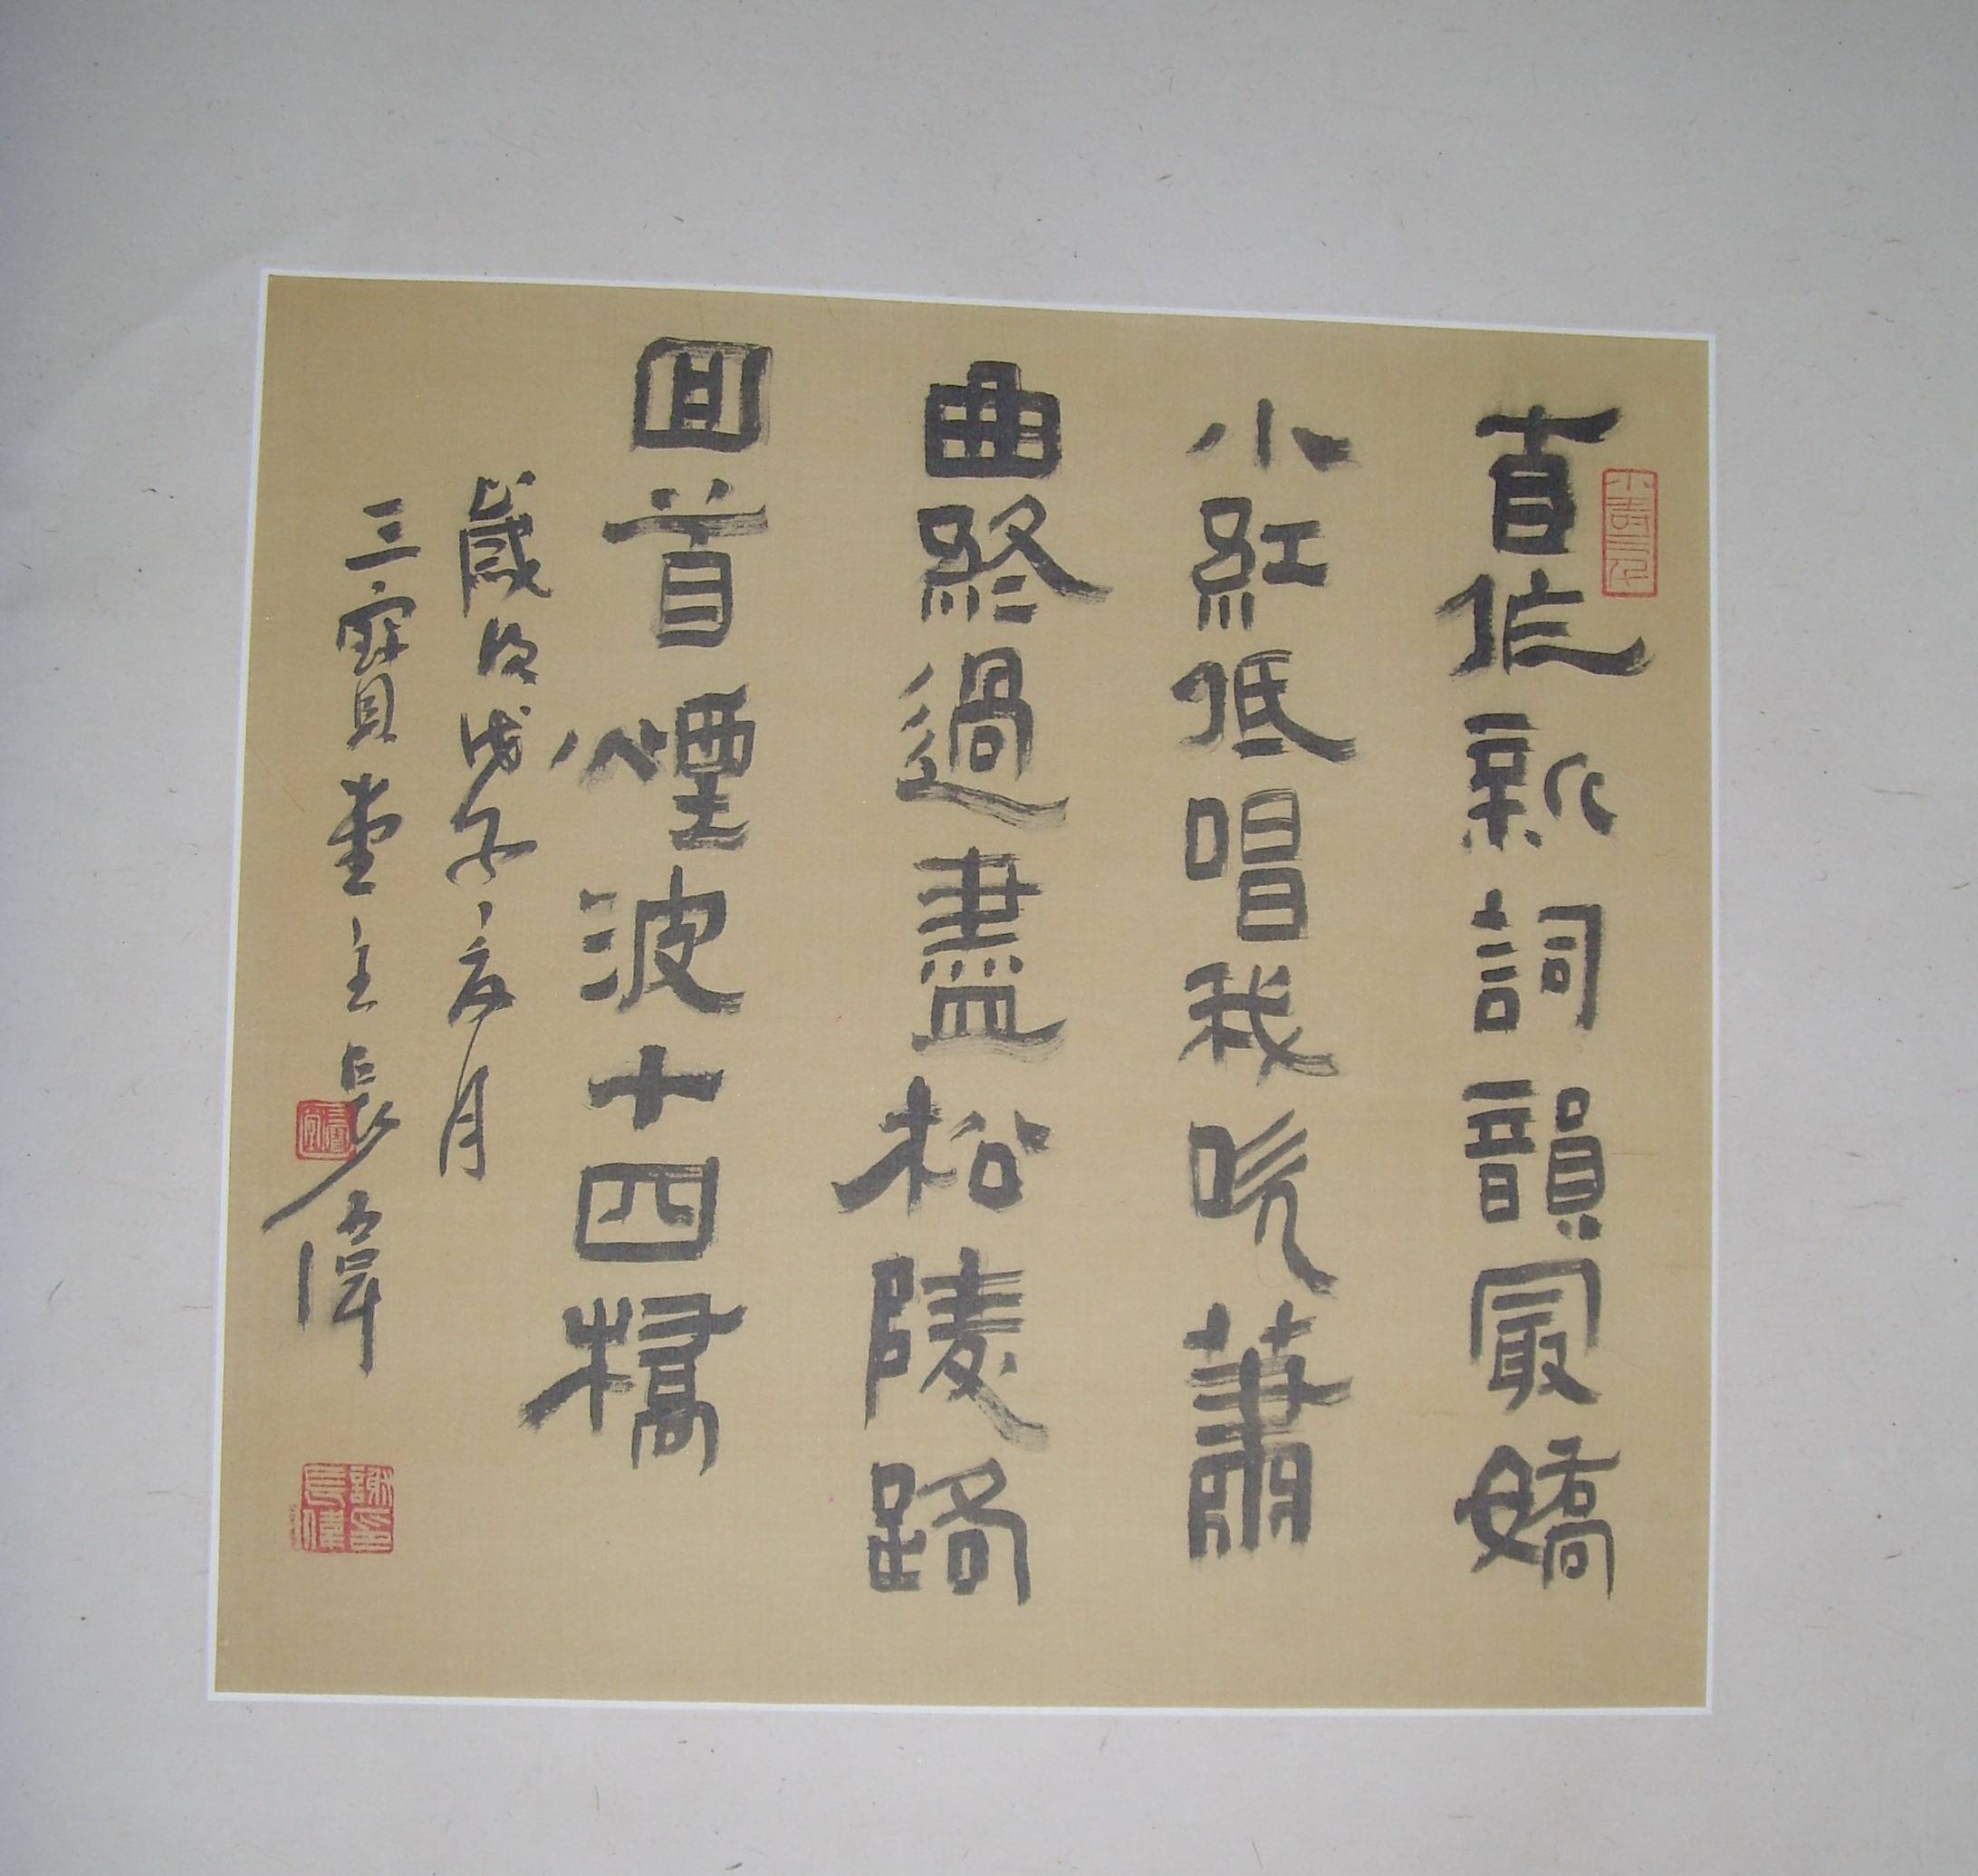 自作新詞韻最嬌
小紅低唱我吹蕭
曲終過盡松陵路
回首煙波十四橋
歲次戊子亥月
三寶堂主長偉
謝印長偉